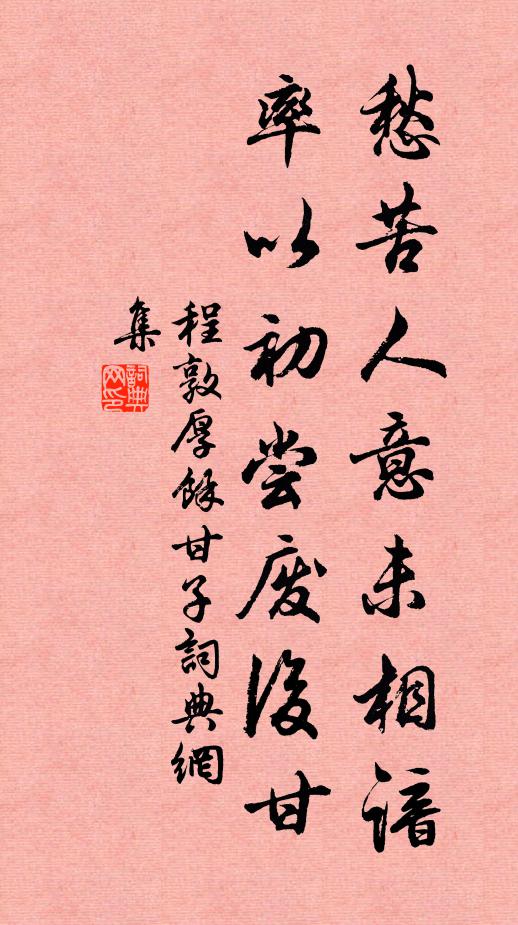 愁苦人意未相谙
率以初尝废后甘
程敦厚餘甘子詞典網
集
詞典網印